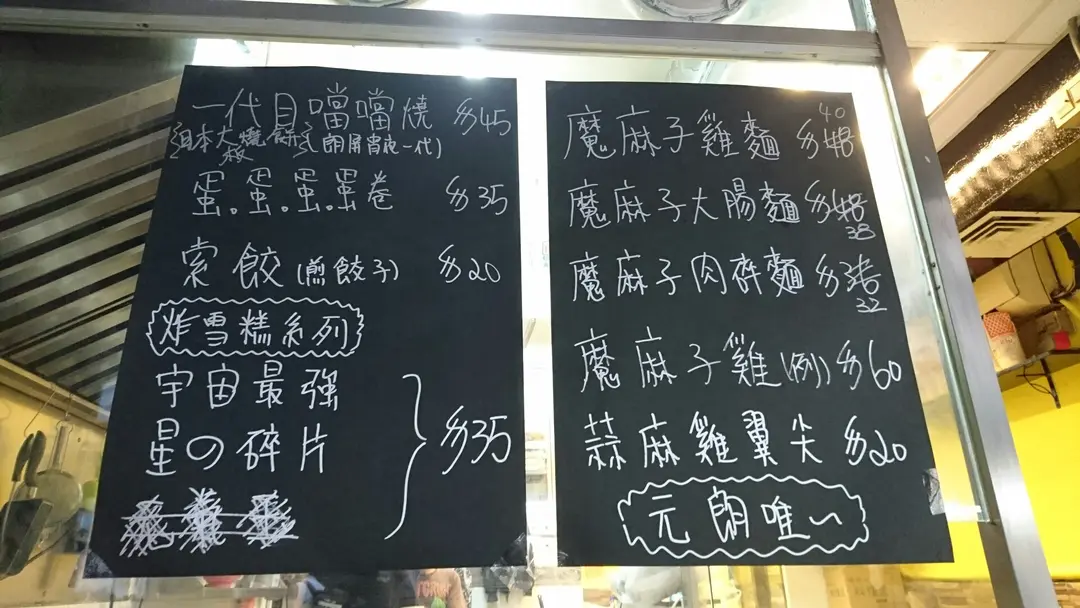 一代目噹噹燒 $45
(日本大阪燒餅)(朗屏宵夜一代)
蛋。蛋。蛋。蛋卷 $35
索餃(煎餃子) $20
炸雪糕系列
宇宙最強
星の碎片 $35
魔麻子雞麵 $ 40
魔麻子大腸麵 $ 38
魔麻子肉碎麵 $ 32
魔麻子雞(例) $60
蒜麻雞翼尖 $20
元朗唯一